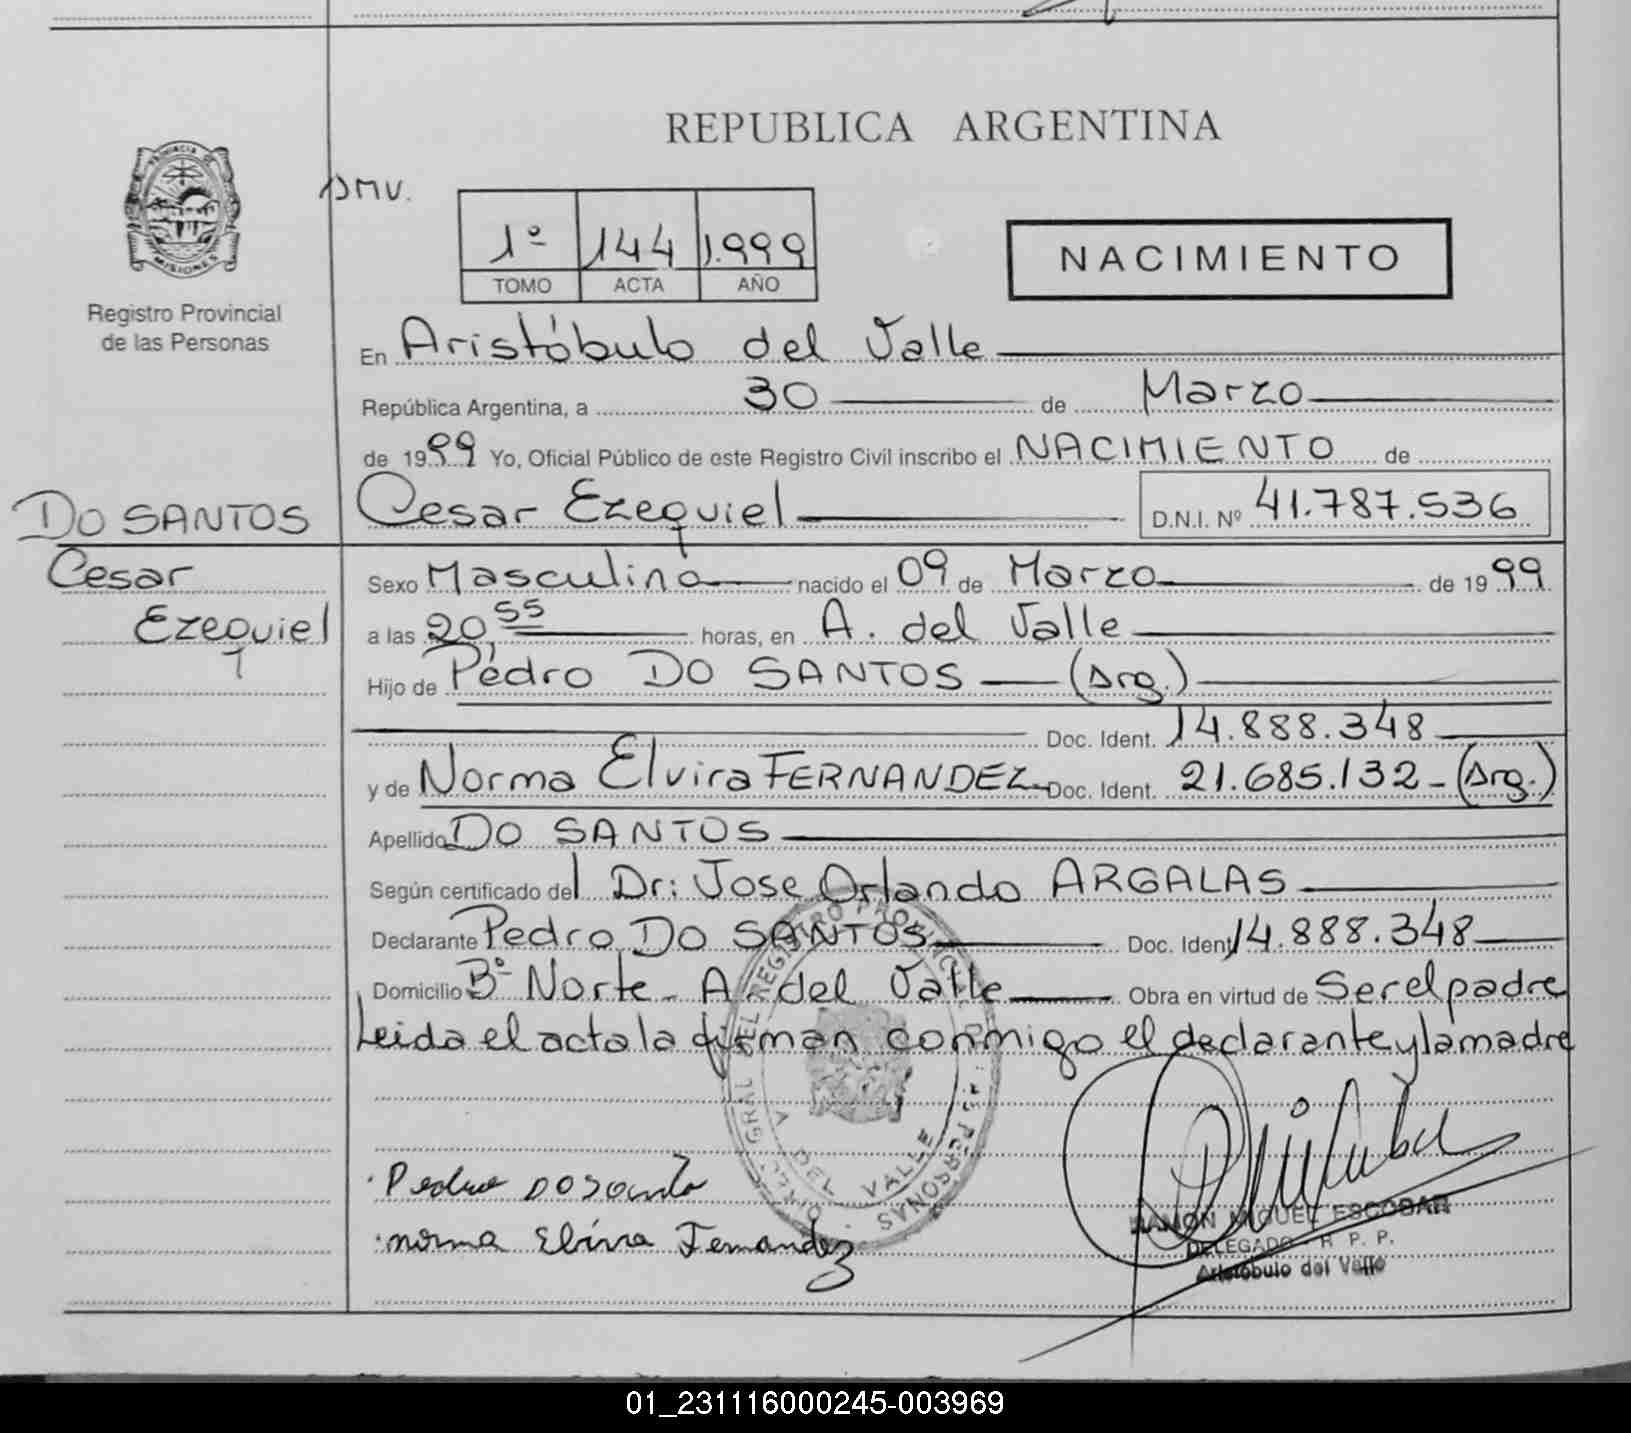 REPUBLICA ARGENTINA
PROVINCIA DE MISIONES
Registro Provincial
de las Personas
1º 144 1.999
TOMO ACTA AÑO
NACIMIENTO
En Aristóbulo del Valle
República Argentina, a 30 de Marzo
de 1999 Yo, Oficial Público de este Registro Civil inscribo el NACIMIENTO de
DO SANTOS
Cesar
Ezequiel
Cesar Ezequiel D.N.I. Nº 41.787.536
Sexo Masculino nacido el 09 de Marzo de 1999
a las 20,55 horas, en A. del Valle
Hijo de Pedro DO SANTOS (Arg.)
Doc. Ident. 14.888.348
y de Norma Elvira FERNANDEZ Doc. Ident. 21.685.132 - (Arg.)
Apellido DO SANTOS
Según certificado del Dr: Jose Orlando ARGALAS
Declarante Pedro DO SANTOS Doc. Ident 14.888.348
Domicilio Bº Norte - A. del Valle Obra en virtud de Ser el padre
Leida el acta la firman conmigo el declarante y la madre
Pedro DOSanto
norma Elvira Fernandez
RAMON MIGUEL ESCOBAR
DELEGADO R. P. P.
Aristóbulo del Valle
01_231116000245-003969